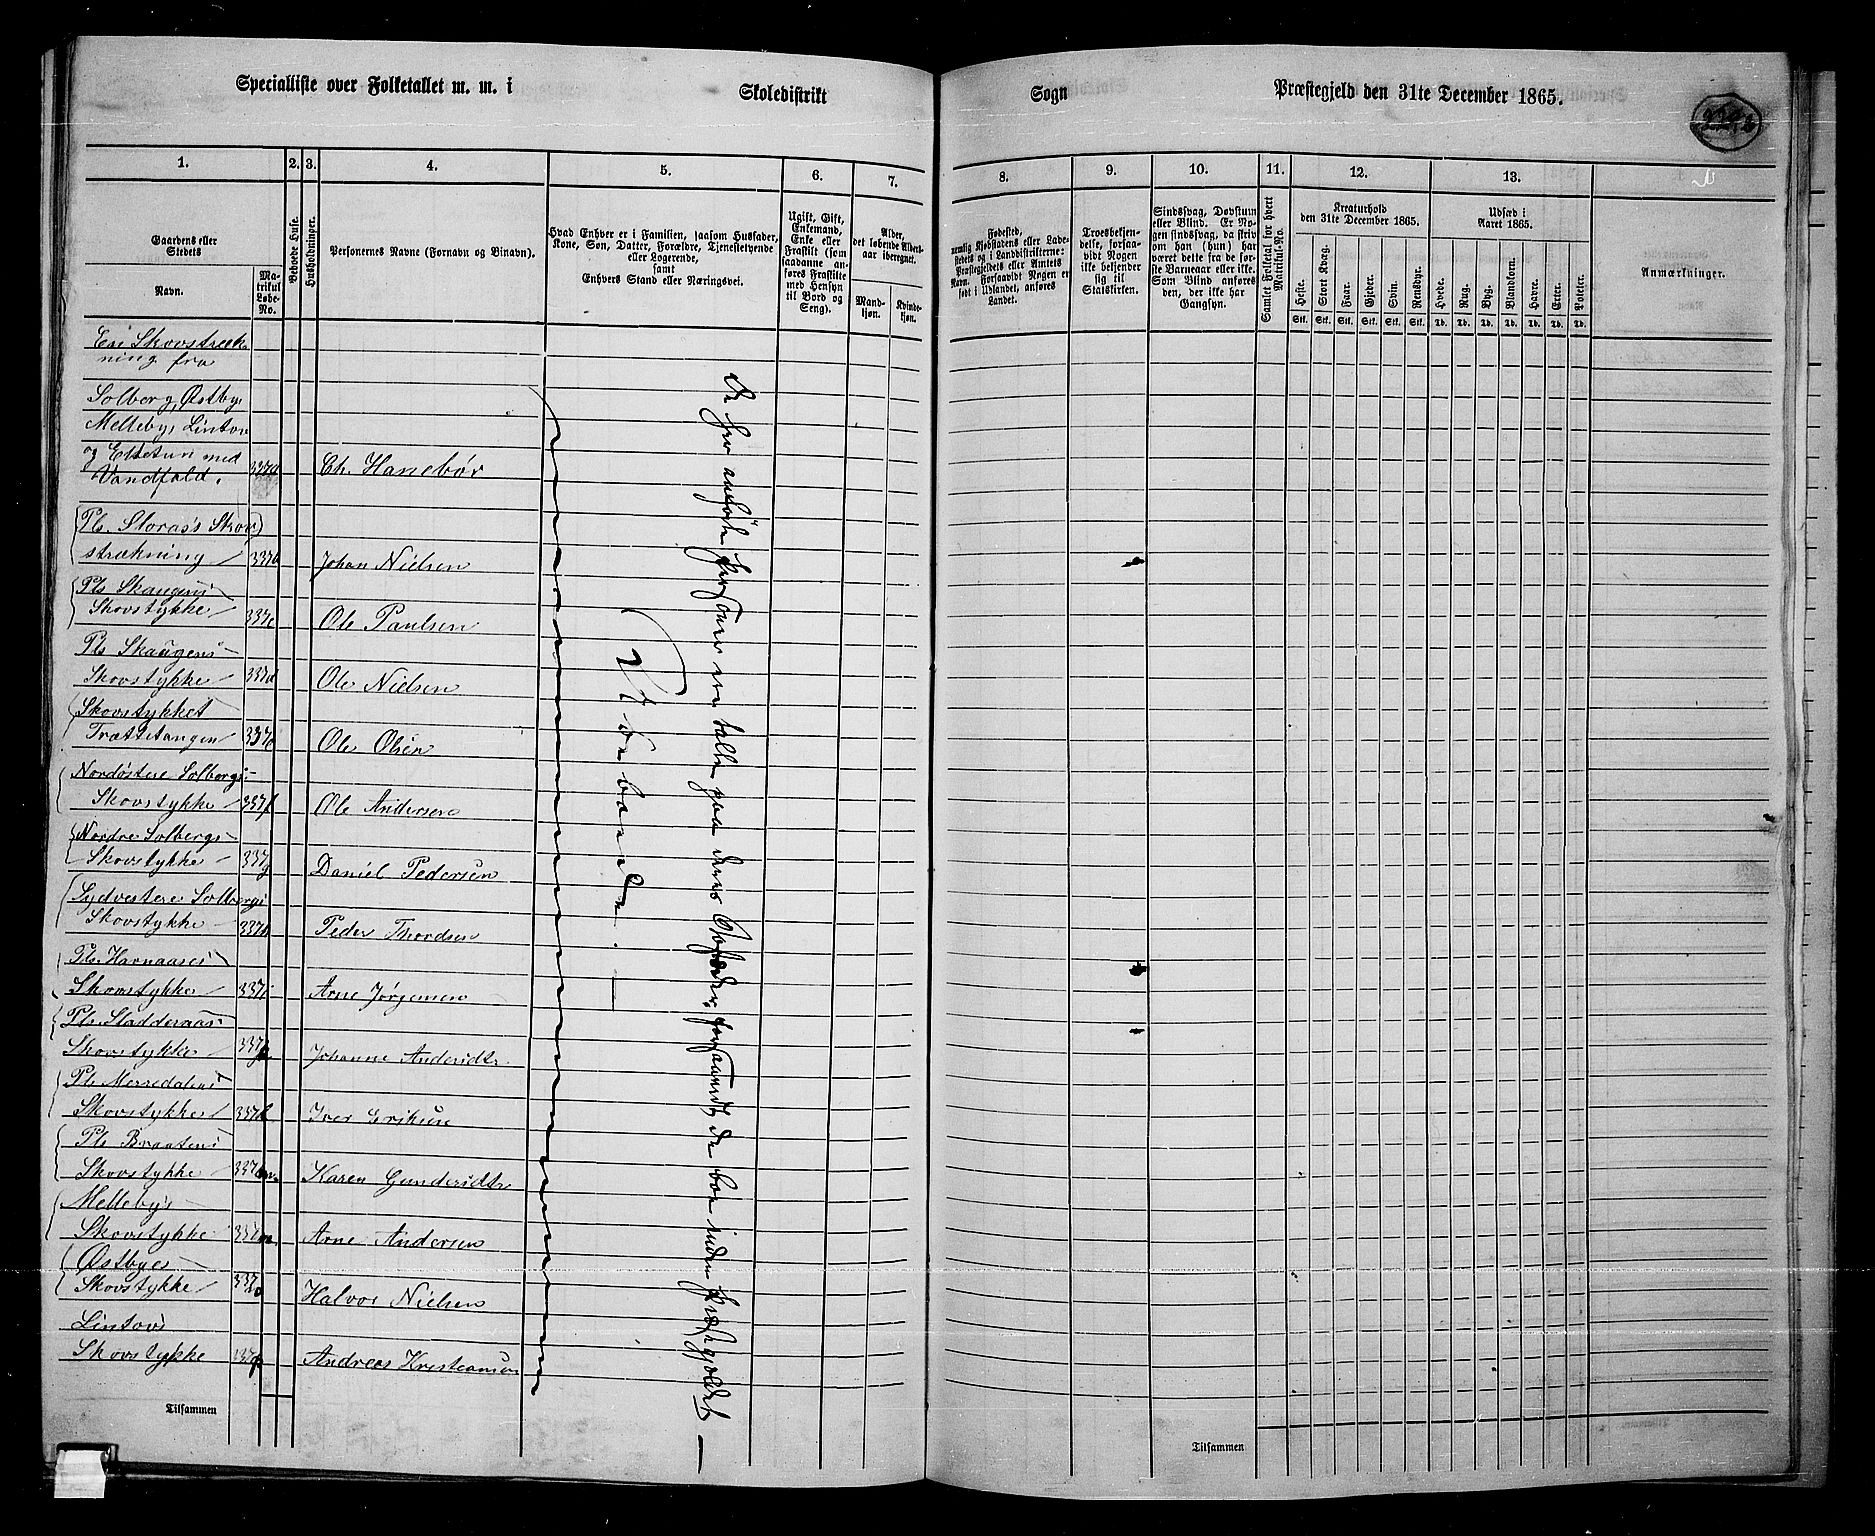 Specialliste over Folketallet m. m. i Skoledistrikt Sogn Præstegjeld den 31te December 1865.
1. 2. 3. 4. 5. 6. 7. 8. 9. 10. 11. 12. 13.
Gaardens eller Stedets Navn.
Matrikul Løbe-No.
Beboede Huse.
Husholdninger.
Personernes Navne (Fornavn og Binavn).
Hvad Enhver er i Familien, saasom Husfader, Kone, Søn, Datter, Forældre, Tjenestetyende eller Logerende, samt Enhvers Stand eller Næringsvei.
Ugift, Gift, Enkemand, Enke eller Fraskilt (som saadanne anføres Fraskilte med Hensyn til Bord og Seng).
Alder, det løbende Alders-aar iberegnet.
Mand-kjøn. Kvinde-kjøn.
Fødested, nemlig Kjøbstadens eller Ladestedets og i Landdistrikterne: Præstegjeldets eller Amtets Navn. Forsaavidt Nogen er født i Udlandet, anføres Landet.
Troesbekjendelse, forsaavidt Nogen ikke bekjender sig til Statskirken.
Sindssvag, Døvstum eller Blind. Er Nogen sindssvag, da skrives om han (hun) har været dette fra de første Barneaar eller ikke. Som Blind anføres den, der ikke har Gangsyn.
Samlet Folketal for hvert Matrikul-No.
Kreaturhold den 31te December 1865.
Heste. Stort Kvæg. Faar. Gjeder. Svin. Rensdyr.
Stk. Stk. Stk. Stk. Stk. Stk.
Udsæd i Aaret 1865.
Hvede. Rug. Byg. Blandkorn. Havre. Erter. Poteter.
Td. Td. Td. Td. Td. Td. Td.
Anmærkninger.
En Skovstræk-
ning fra
Solberg, Østby,
Melleby, Lintov
og med
Vandfald. 337a Ch. Hanebør
Pls. Storaas's Skov
strækning 337b Johan Nielsen
Pls Skaugens
Skovstykke 337c Ole Paulsen
Pls Skaugens
Skovstykke 337d Ole Nielsen
Skovstykket
Trættetangen 337e Ole Olsen
Nordøstre Solbergs
Skovstykke 337f Ole Andersen
Nordre Solbergs
Skovstykke 337g Daniel Pedersen
Sydvestere Solbergs
Skovstykke 337h Peder Thordsen
Pls. Harnaases
Skovstykke 337i Arne Jørgensen
Pls. Sladderaas
Skovstykke 337k Johanne Andersdtr
Pls Merredalens
Skovstykke 337l Iver Eriksen
Pls Braatens
Skovstykke 337m Karen Gundersdtr
Mellebys
Skovstykke 337n Arne Andersen
Østbyes
Skovstykke 337o Halvor Nielsen
Lintovs
Skovstykke 337p Andreas Kristiansen
Ubeboede.
De her anførte Personer ere talte paa deres Bosteder, forsaavidt de boe inden Præstegjeldet
Tilsammen
Tilsammen